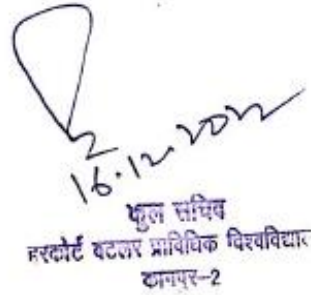 16.12.2022
कुल सचिव
हरकोर्ट बटलर प्राविधिक विश्वविद्याल
कानपुर-2